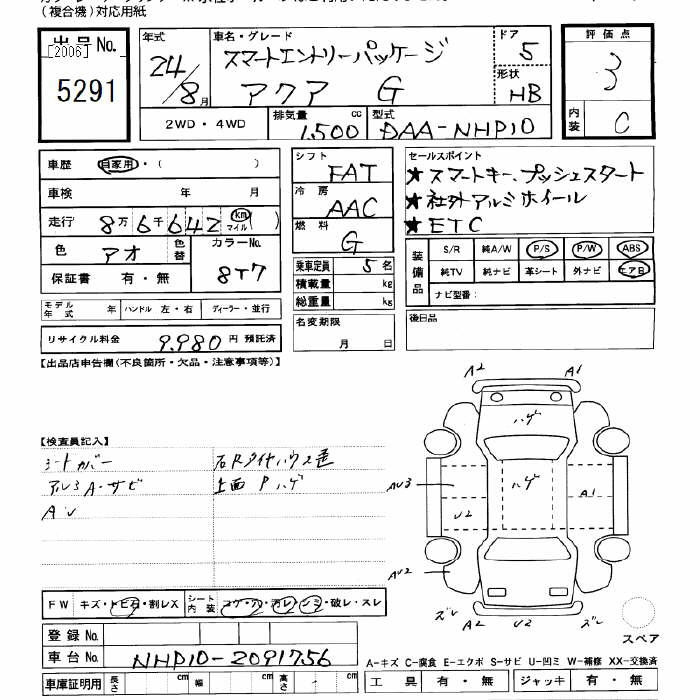 (複合機)対応用紙
出品No. [2006] 5291
年式 24/8月
車名・グレード スマートエントリーパッケージ
アクア G
ドア 5
形状 HB
2WD・4WD 排気量 1,500 cc 型式 DAA-NHP10
評価点 3
内装 C
車歴 自家用・( )
車検 年 月
走行 8万6千642 km マイル( )
色 アオ 色替 カラーNo. 8T7
保証書 有・無
モデル年式 年 ハンドル 左・右 ディーラー・並行
リサイクル料金 9,980 円 預託済
シフト FAT
冷房 AAC
燃料 G
乗車定員 5 名
積載量 kg
総重量 kg
名変期限 月 日
セールスポイント
★スマートキー、プッシュスタート
★社外アルミホイール
★ETC
装備品 S/R 純A/W P/S P/W ABS
純TV 純ナビ 革シート 外ナビ エアB
ナビ型番:
後日品
【出品店申告欄(不良箇所・欠品・注意事項等)】
【検査員記入】
シートカバー
アルミA・サビ
AU
右Rタイヤハウス色
上面 Pハゲ
A2 A1
ハゲ
AU3 ハゲ A1
U2
AU2
ズレ A2 U2 ズレ
スペア
FW キズ・トビ石・割レX シート内装 コゲ・穴・汚レ・シミ・破レ・スレ
登録No.
車台No. NHP10-2091756
車庫証明用 長さ cm 幅 cm 高さ cm
A-キズ C-腐食 E-エクボ S-サビ U-凹ミ W-補修 XX-交換済
工具 有・無 ジャッキ 有・無